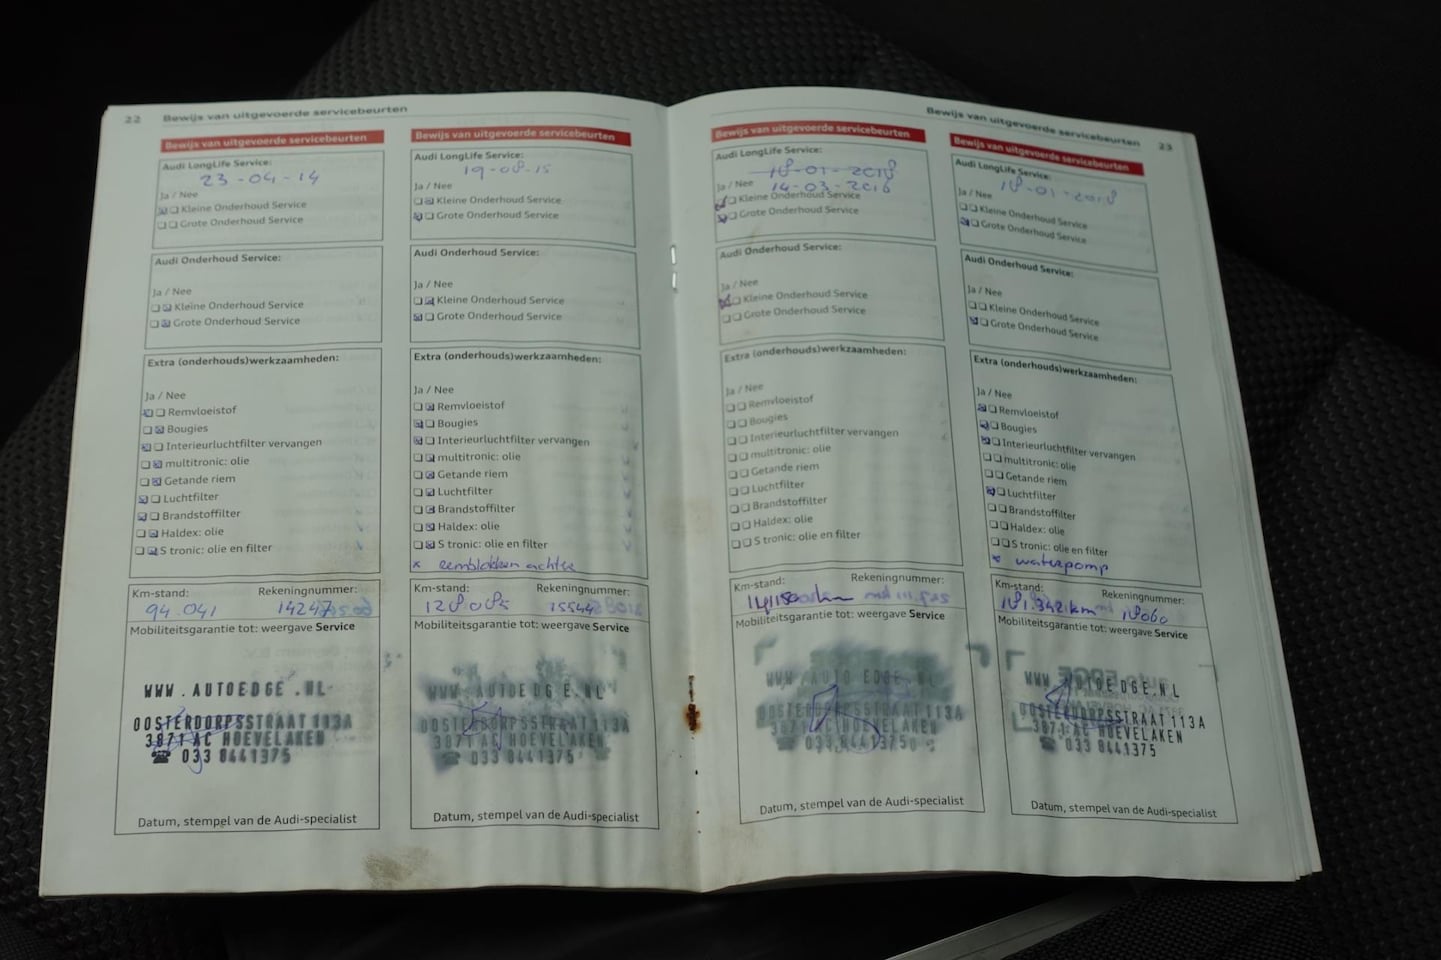 22 Bewijs van uitgevoerde servicebeurten
Bewijs van uitgevoerde servicebeurten
Audi LongLife Service:
23-04-14
Ja / Nee
Kleine Onderhoud Service
Grote Onderhoud Service
Audi Onderhoud Service:
Ja / Nee
Kleine Onderhoud Service
Grote Onderhoud Service
Extra (onderhouds)werkzaamheden:
Ja / Nee
Remvloeistof
Bougies
Interieurluchtfilter vervangen
multitronic: olie
Getande riem
Luchtfilter
Brandstoffilter
Haldex: olie
S tronic: olie en filter
Km-stand: Rekeningnummer:
94.041
Mobiliteitsgarantie tot: weergave Service
WWW.AUTOEDGE.NL
OOSTERDORPSSTRAAT 113A
3871 AC HOEVELAKEN
☎ 033 8441375
Datum, stempel van de Audi-specialist
Bewijs van uitgevoerde servicebeurten
Audi LongLife Service:
19-08-15
Ja / Nee
Kleine Onderhoud Service
Grote Onderhoud Service
Audi Onderhoud Service:
Ja / Nee
Kleine Onderhoud Service
Grote Onderhoud Service
Extra (onderhouds)werkzaamheden:
Ja / Nee
Remvloeistof
Bougies
Interieurluchtfilter vervangen
multitronic: olie
Getande riem
Luchtfilter
Brandstoffilter
Haldex: olie
S tronic: olie en filter
x remblokken achter
Km-stand: Rekeningnummer:
128.085
Mobiliteitsgarantie tot: weergave Service
WWW.AUTOEDGE.NL
OOSTERDORPSSTRAAT 113A
3871 AC HOEVELAKEN
☎ 033 8441375
Datum, stempel van de Audi-specialist
Bewijs van uitgevoerde servicebeurten 23
Bewijs van uitgevoerde servicebeurten
Audi LongLife Service:
18-01-2018
Ja / Nee 14-03-2016
Kleine Onderhoud Service
Grote Onderhoud Service
Audi Onderhoud Service:
Ja / Nee
Kleine Onderhoud Service
Grote Onderhoud Service
Extra (onderhouds)werkzaamheden:
Ja / Nee
Remvloeistof
Bougies
Interieurluchtfilter vervangen
multitronic: olie
Getande riem
Luchtfilter
Brandstoffilter
Haldex: olie
S tronic: olie en filter
Km-stand: Rekeningnummer:
Mobiliteitsgarantie tot: weergave Service
WWW.AUTOEDGE.NL
OOSTERDORPSSTRAAT 113A
3871 AC HOEVELAKEN
033 8441375
Datum, stempel van de Audi-specialist
Bewijs van uitgevoerde servicebeurten
Audi LongLife Service:
18-01-2018
Ja / Nee
Kleine Onderhoud Service
Grote Onderhoud Service
Audi Onderhoud Service:
Ja / Nee
Kleine Onderhoud Service
Grote Onderhoud Service
Extra (onderhouds)werkzaamheden:
Ja / Nee
Remvloeistof
Bougies
Interieurluchtfilter vervangen
multitronic: olie
Getande riem
Luchtfilter
Brandstoffilter
Haldex: olie
S tronic: olie en filter
x waterpomp
Km-stand: Rekeningnummer:
181.342km 18060
Mobiliteitsgarantie tot: weergave Service
WWW.AUTOEDGE.NL
OOSTERDORPSSTRAAT 113A
3871 AC HOEVELAKEN
☎ 033 8441375
Datum, stempel van de Audi-specialist